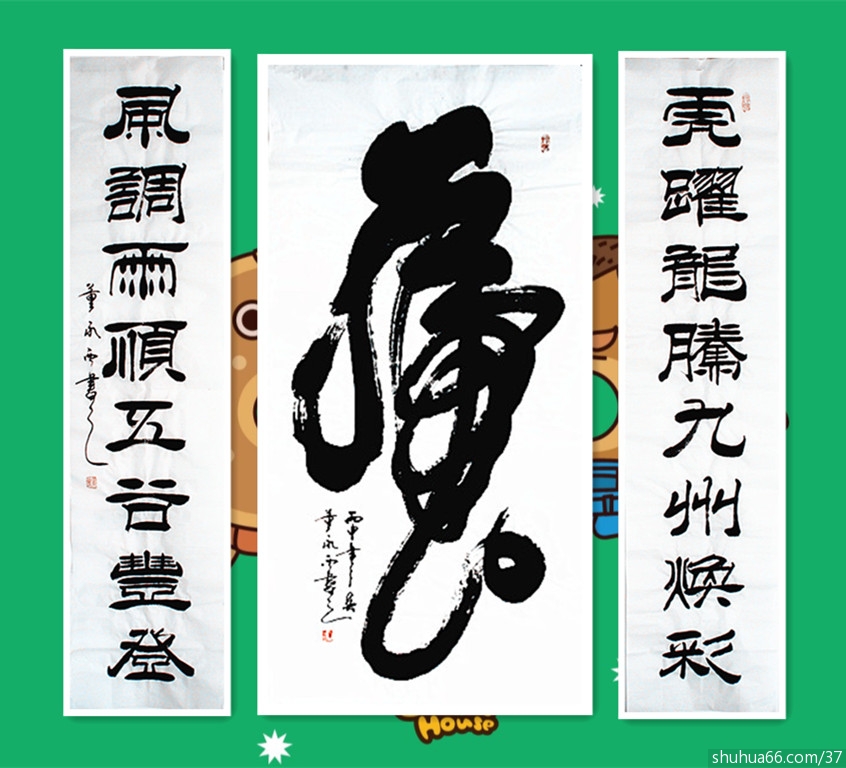 虎躍龍騰九州煥彩
虎
丙申年
董永西書
風調雨順五谷豐登
董永西書
House
shuhua66.com/37